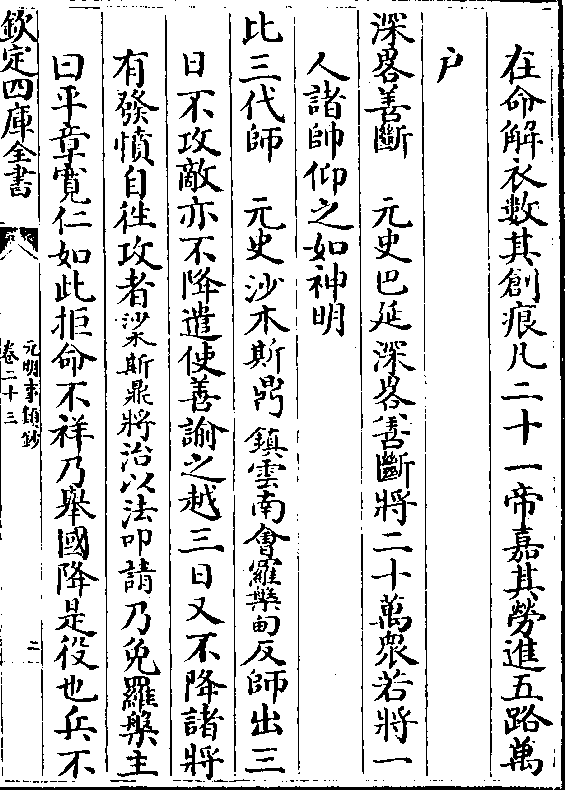 在命解衣數其創痕凡二十一帝嘉其勞進五路萬
户
深畧善斷　元史巴延深畧善斷將二十萬衆若將一
人諸帥仰之如神明
比三代師　元史沙木斯鼎鎮雲南會羅槃甸反師出三
日不攻敵亦不降遣使善諭之越三日又不降諸將
有發憤自徃攻者沙木斯鼎將治以法叩請乃免羅槃主
曰平章寛仁如此拒命不祥乃舉國降是役也兵不
欽定四庫全書
元明事類鈔
卷二十三
二